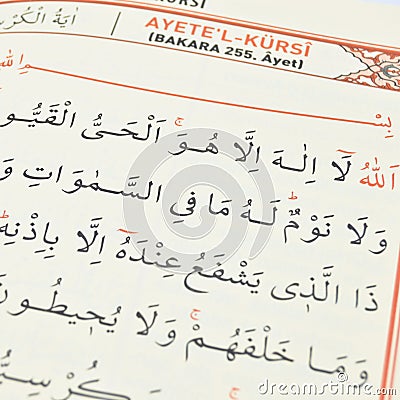 KÜRSÎ
اٰيَةُ الْكُرْسِ
AYETE'L-KÜRSÎ
(BAKARA 255. Âyet)
بِسْمِ اللهِ
اَللّٰهُ لَٓا اِلٰهَ اِلَّا هُوَۚ اَلْحَيُّ الْقَيُّو
وَلَا نَوْمٌۜ لَهُ مَا فِي السَّمٰوَاتِ وَ
ذَا الَّذ۪ي يَشْفَعُ عِنْدَهُٓ اِلَّا بِاِذْنِه۪ۜ
وَمَا خَلْفَهُمْۚ وَلَا يُح۪يطُونَ
كُرْسِيُّ
dreamstime.com